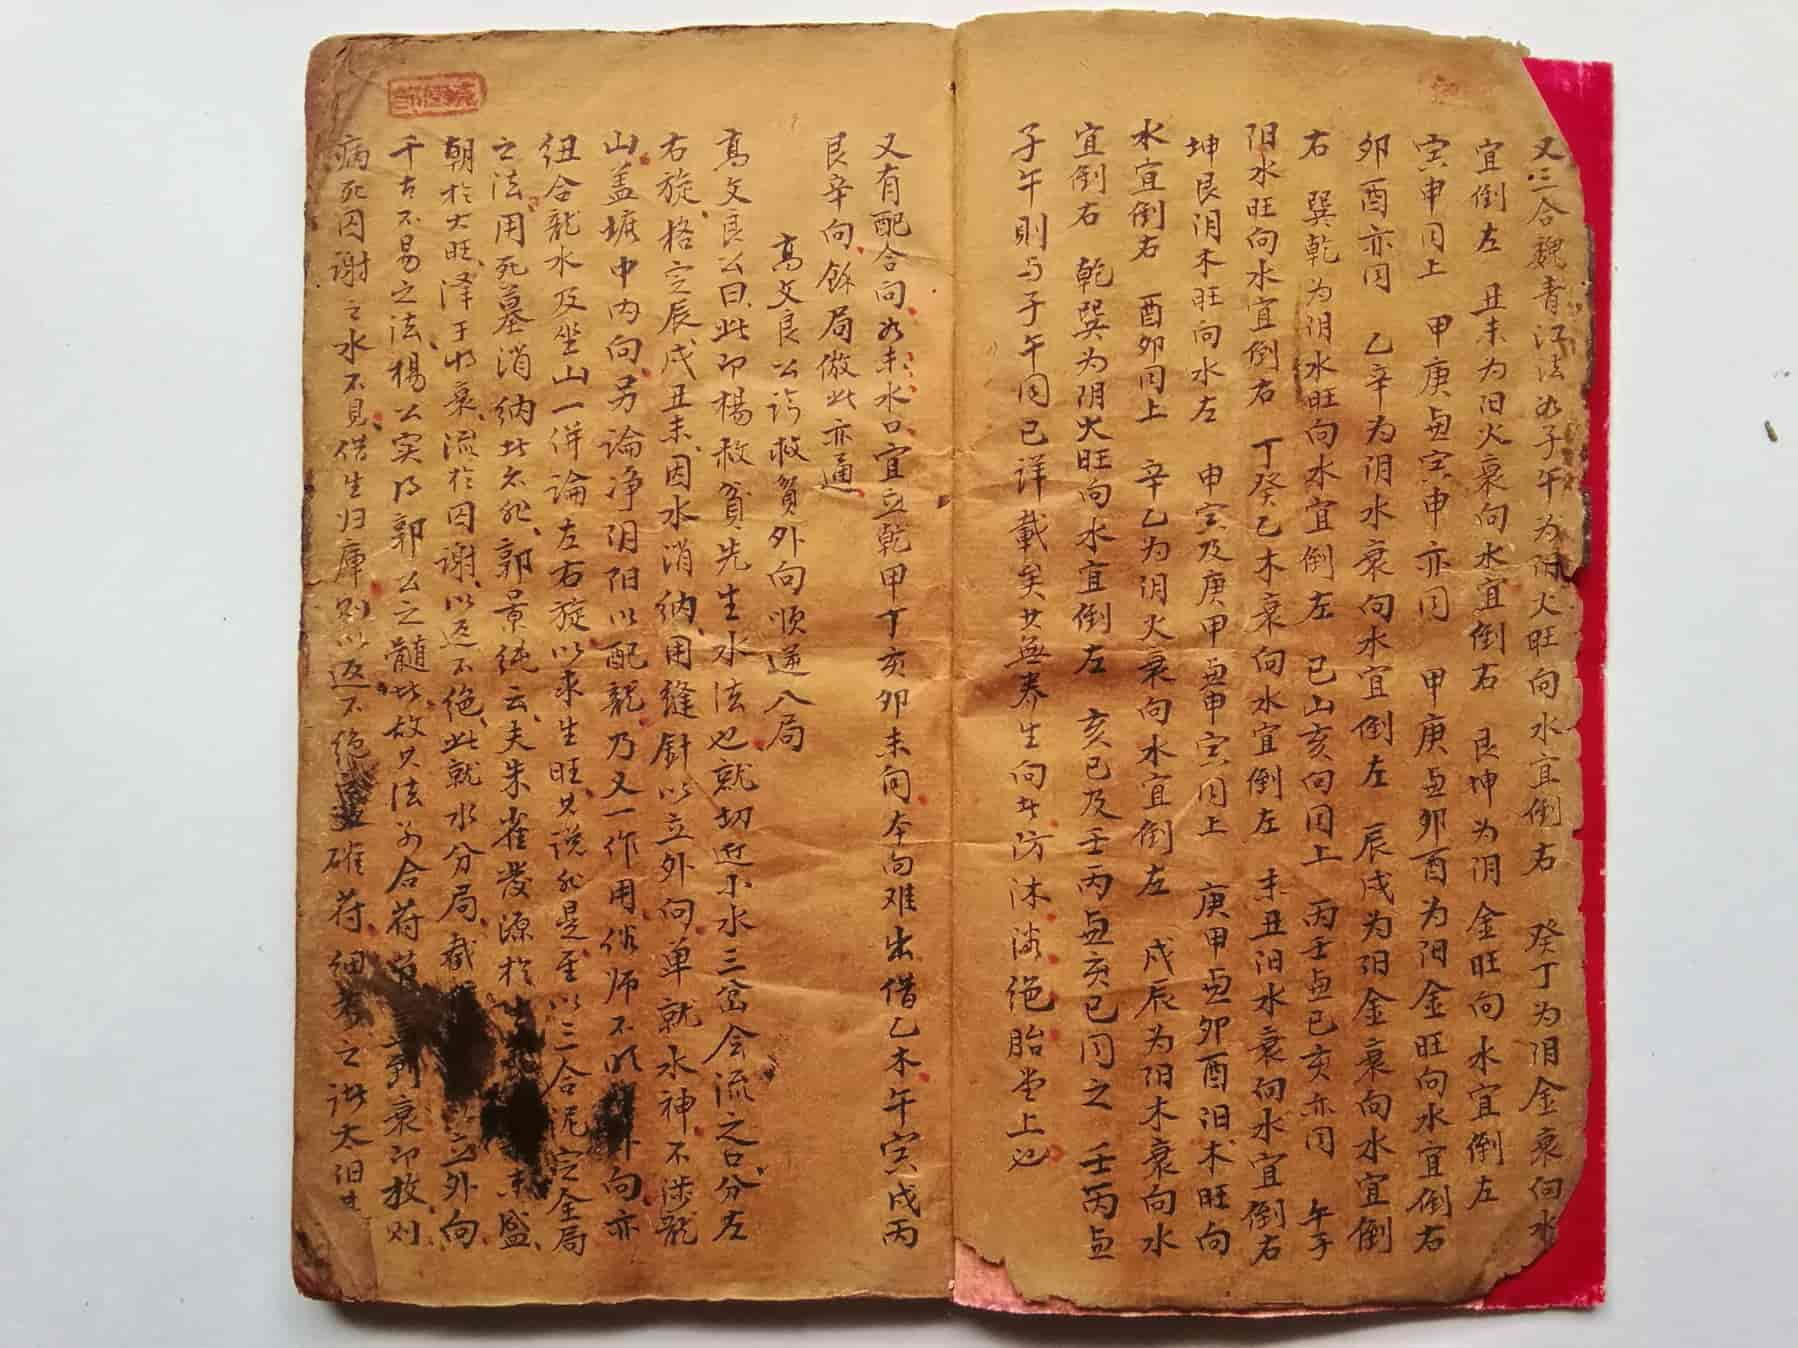 又三合魏青江法如子午为阳火旺向水宜倒右　癸丁为阴金衰向水
宜倒左　丑未为阳火衰向水宜倒右　艮坤为阴金旺向水宜倒左
寅申同上　甲庚与寅申亦同　甲庚与卯酉为阳金旺向水宜倒右
卯酉亦同　乙辛为阴水衰向水宜倒左　辰戌为阳金衰向水宜倒
右　巽乾为阴水旺向水宜倒左　巳山亥向同上　丙壬与巳亥亦同　午子
阳水旺向水宜倒右　丁癸乙木衰向水宜倒左　未丑阳水衰向水宜倒右
坤艮阴木旺向水左　申寅及庚甲与申寅同上　庚甲与卯酉阳木旺向
水宜倒右　酉卯同上　辛乙为阴火衰向水宜倒左　戌辰为阳木衰向水
宜倒右　乾巽为阴火旺向水宜倒左　亥巳及壬丙与亥巳同之　壬丙与
子午則与子午同已详載矣其無养生向者防沐浴绝胎堂上也
又有配合向如未水口宜立乾甲丁亥卯未向本向难出借乙木午寅戌丙
艮辛向餘局倣此亦通
高文良公論救貧外向順逆入局
高文良公曰此即楊救貧先生水法也就切近小水三岔会流之口分左
右旋格定辰戌丑未因水消納用縫針以立外向单就水神不涉龍
山盖塘中内向另論净阴阳以配龍乃又一作用俗师不明外向亦
纽合龍水及坐山一併論左右旋以求生旺其說非是至以三合泥定全局
之法用死墓消納此亦非郭景純云夫朱雀發源於生氣未盛
朝於大旺泽于将衰流於囚謝以返不绝此就水分局截立外向
千古不易之法楊公实得郭公之髓此故其法若合符節到衰即放則
病死囚謝之水不見借生归庫則以返不绝确符細考之此太旧